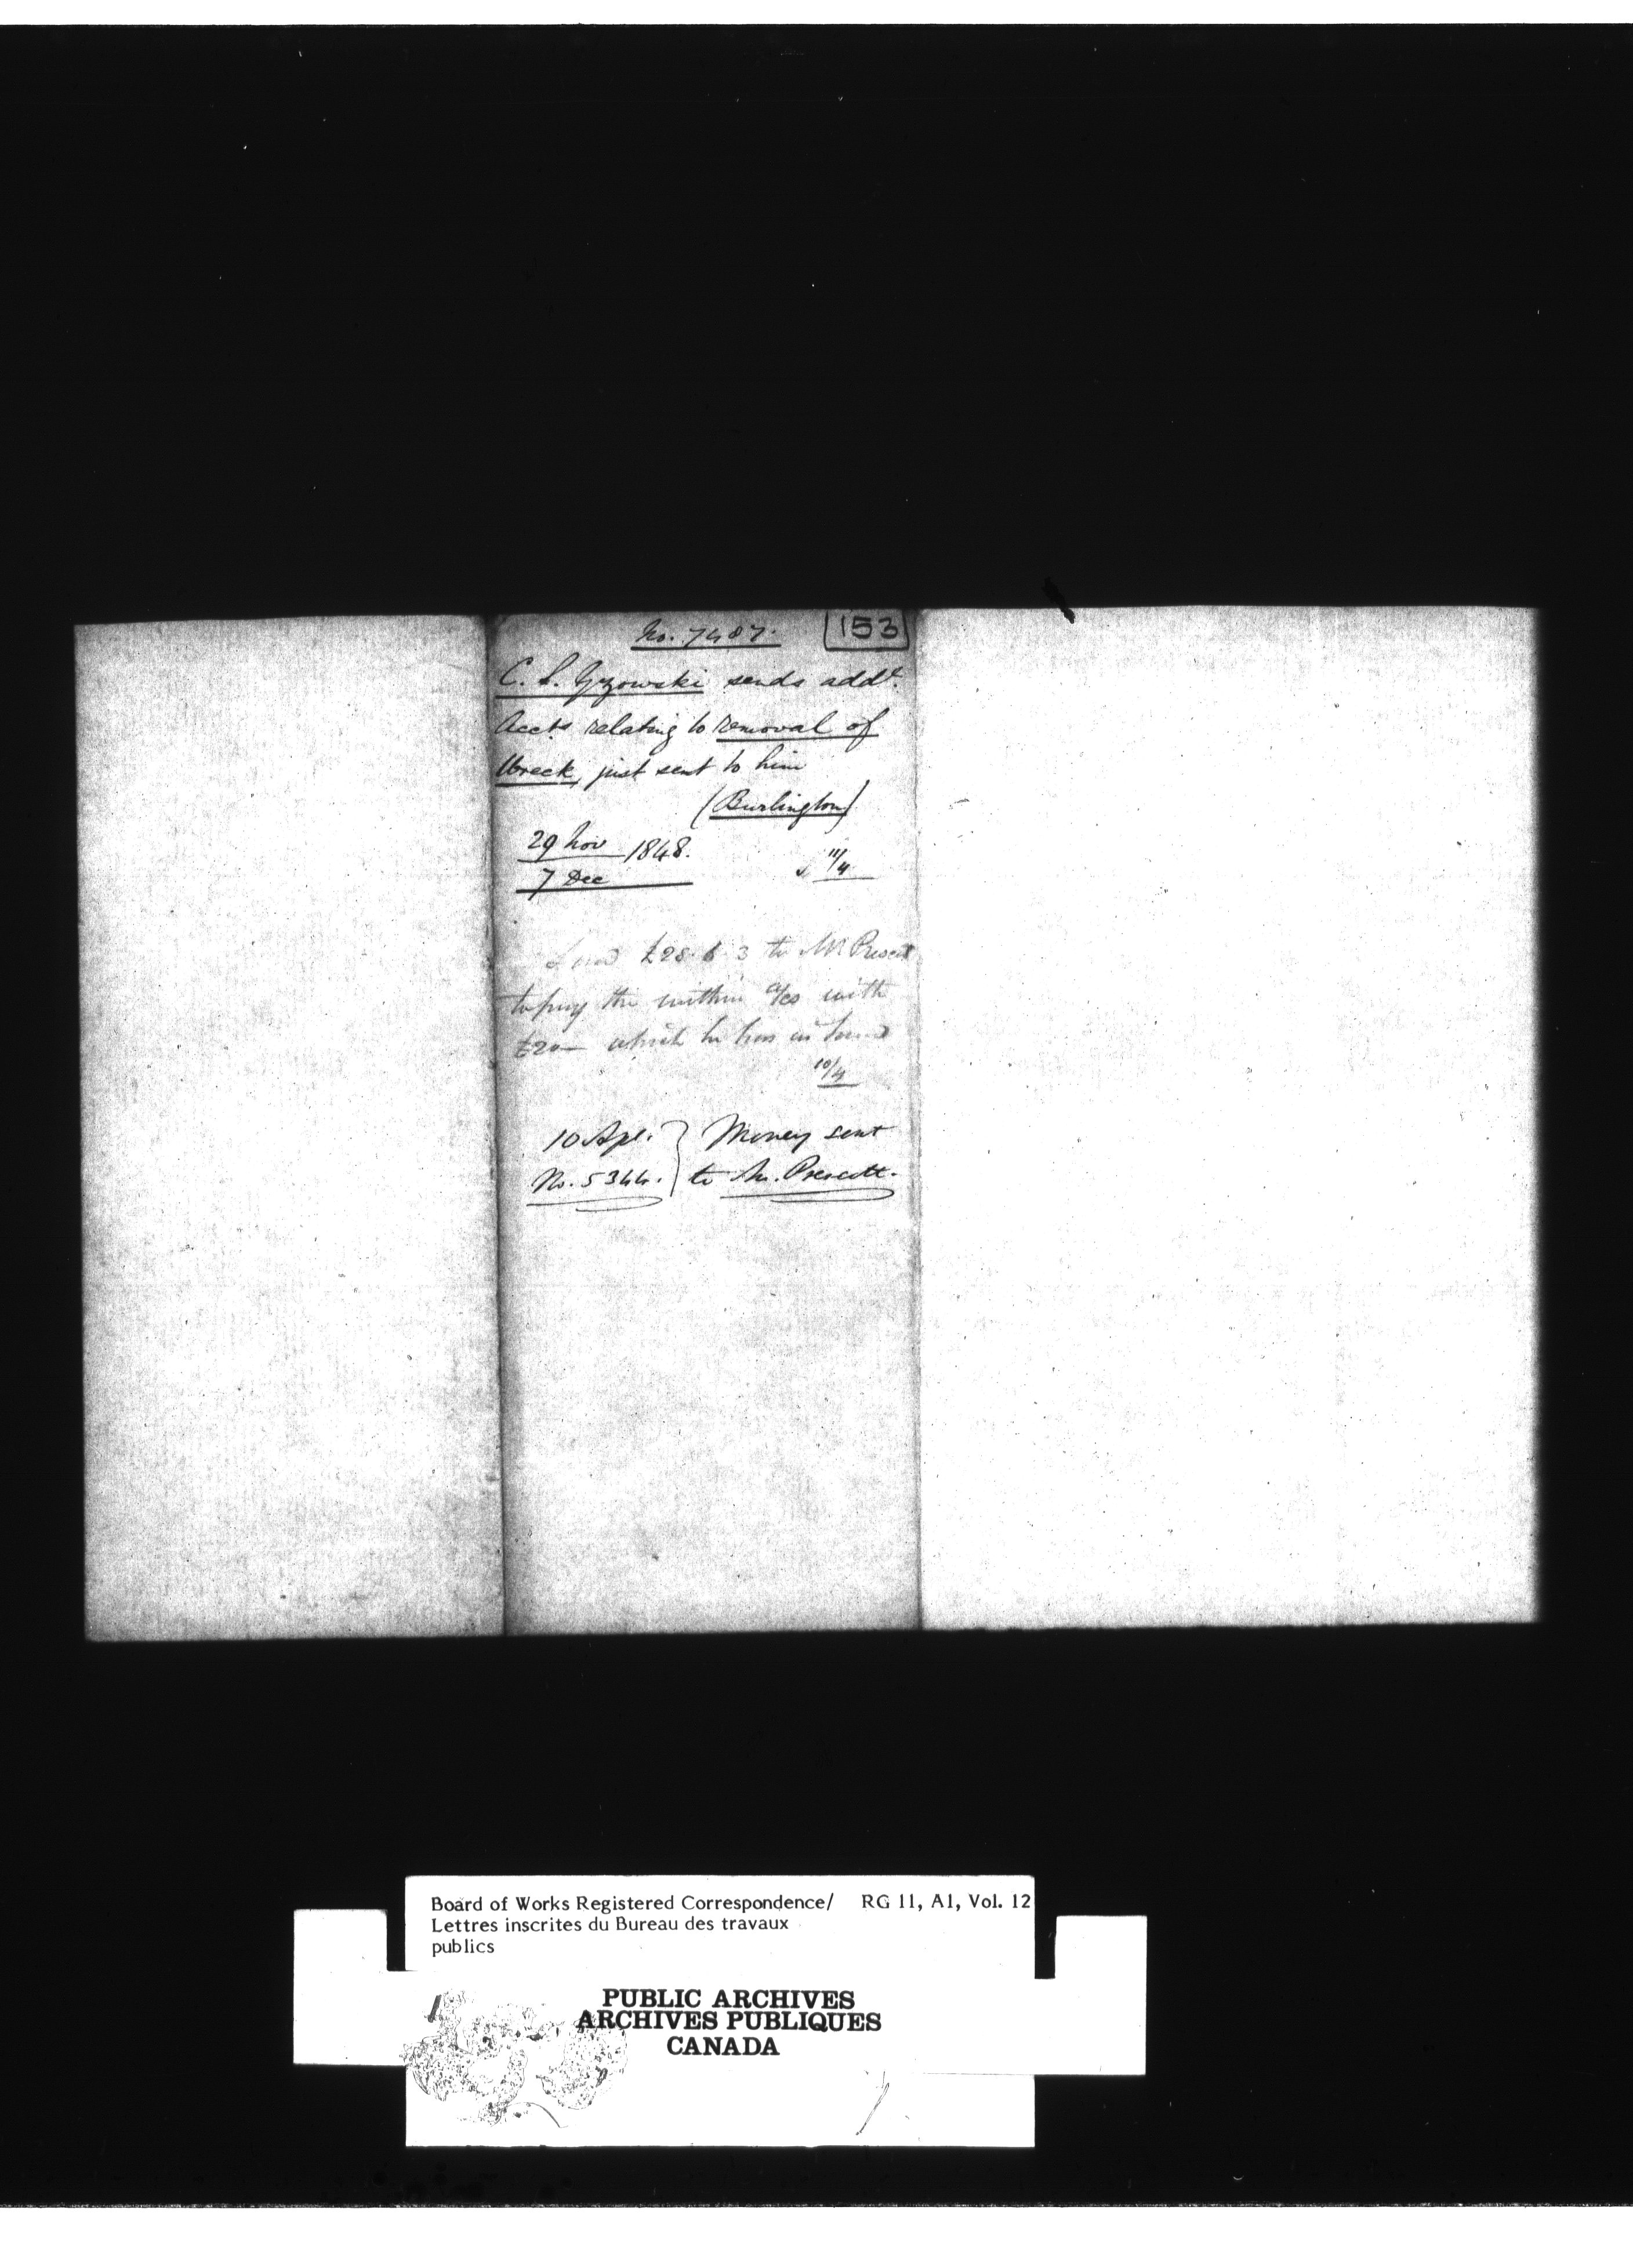 No. 7487. 153
C. S. Gzowski sends addl.
Accts relating to removal of
Wreck, just sent to him
(Burlington)
29 Nov 1848.
7 Dec
11/4
Send £28. 6. 3 to Mr. Prescott
to pay the within a/cs with
£20— which he has in hand
10/4
10 Apl. } Money sent
No. 5344. } to Mr. Prescott.
Board of Works Registered Correspondence/ RG 11, A1, Vol. 12
Lettres inscrites du Bureau des travaux
publics
PUBLIC ARCHIVES
ARCHIVES PUBLIQUES
CANADA